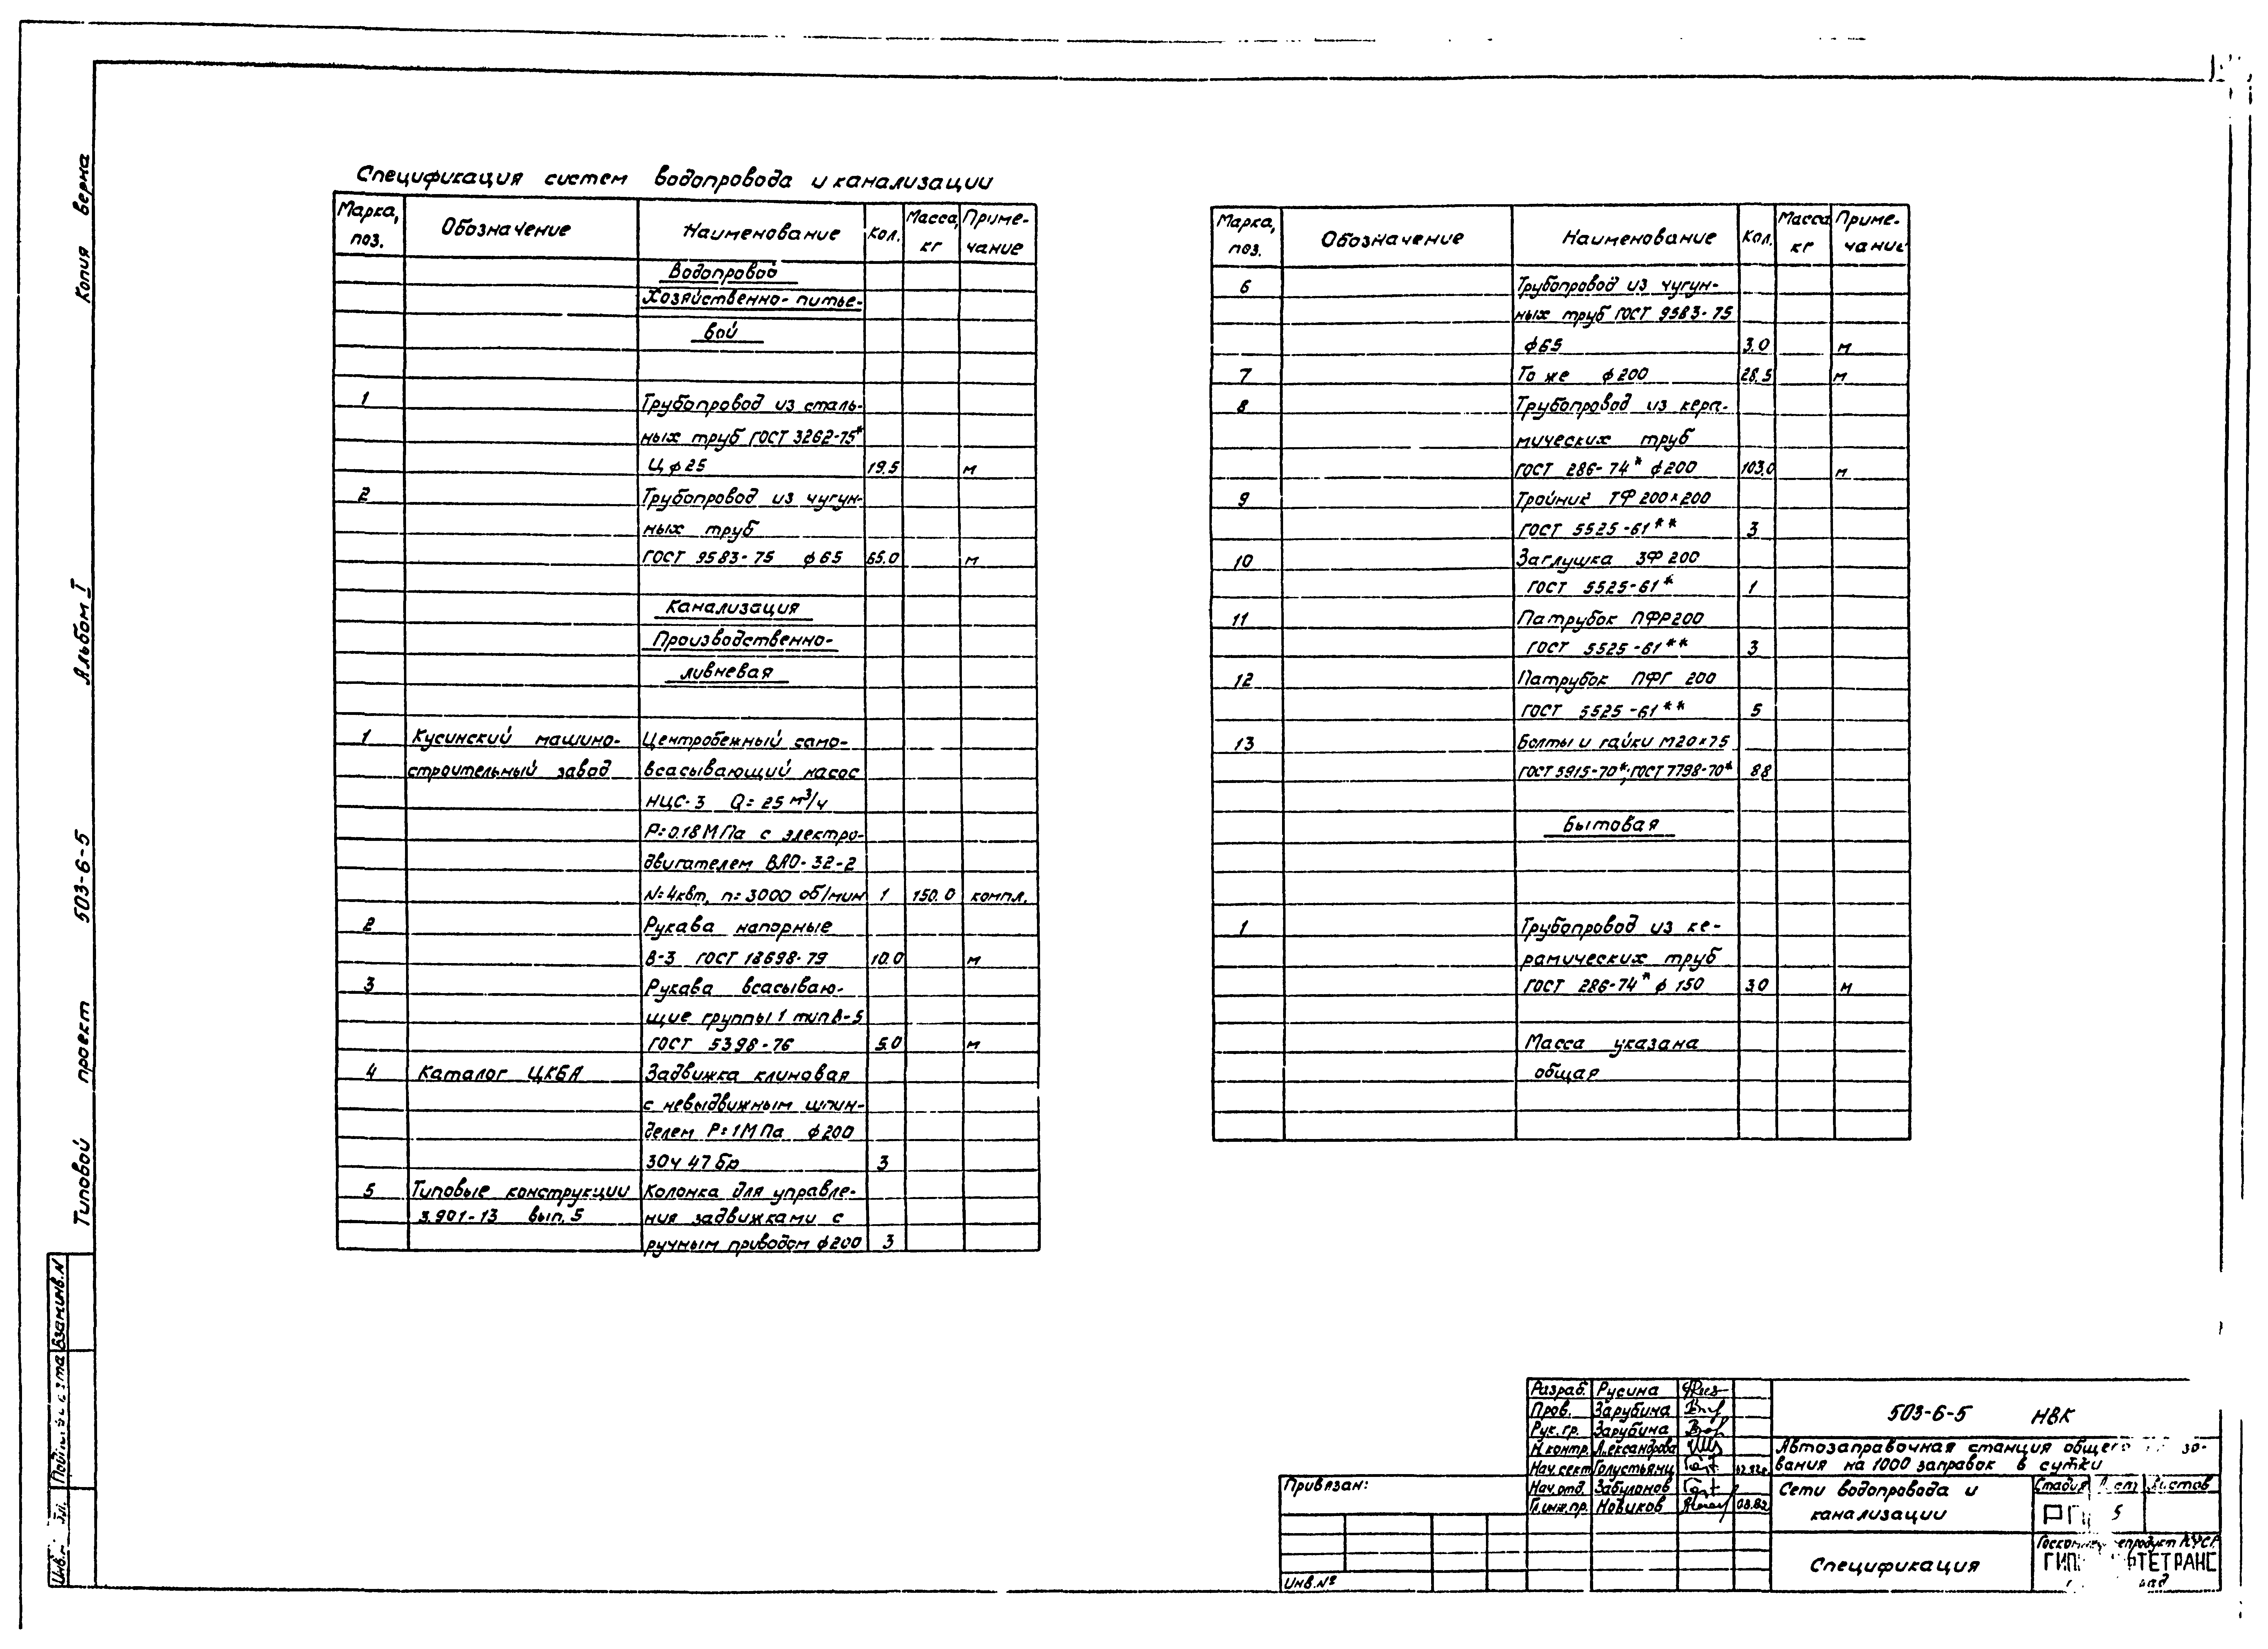 Копия верна
Альбом I
Типовой проект 503-6-5
Взам.инв.N
Спецификация систем водопровода и канализации
Марка, поз. Обозначение Наименование Кол. Масса, кг Приме-чание
Водопровод
Хозяйственно-питье-
вой
1 Трубопровод из сталь-
ных труб ГОСТ 3262-75*
Ц ф 25 19.5 м
2 Трубопровод из чугун-
ных труб
ГОСТ 9583-75 ф 65 65.0 м
Канализация
Производственно-
ливневая
1 Кусинский машино- Центробежный само-
строительный завод всасывающий насос
НЦС-3 Q=25 м³/ч
Р=0.18 МПа с электро-
двигателем ВАО-32-2
N=4квт, n=3000 об/мин 1 150.0 компл.
2 Рукава напорные
В-3 ГОСТ 18698-79 10.0 м
3 Рукава всасываю-
щие группы 1 тип В-5
ГОСТ 5398-76 5.0 м
4 Каталог ЦКБА Задвижка клиновая
с невыдвижным шпин-
делем Р=1МПа ф 200
30ч 47 бр 3
5 Типовые конструкции Колонка для управле-
3.901-13 вып. 5 ния задвижками с
ручным приводом ф 200 3
Марка, поз. Обозначение Наименование Кол. Масса кг Приме-чание
6 Трубопровод из чугун-
ных труб ГОСТ 9583-75
ф 65 3.0 м
7 То же ф 200 28.5 м
8 Трубопровод из кера-
мических труб
ГОСТ 286-74* ф 200 103.0 м
9 Тройник ТФ 200х200
ГОСТ 5525-61** 3
10 Заглушка ЗФ 200
ГОСТ 5525-61* 1
11 Патрубок ПФР200
ГОСТ 5525-61** 3
12 Патрубок ПФГ 200
ГОСТ 5525-61** 5
13 Болты и гайки М20х75
ГОСТ 5915-70*; ГОСТ 7798-70* 88
Бытовая
1 Трубопровод из ке-
рамических труб
ГОСТ 286-74* ф 150 30 м
Масса указана
общая
Разраб. Русина
Пров. Зарубина
Рук. гр. Зарубина
Н.контр. Александрова
Нач.сект Голустьянц
Нач.отд. Забулонов
Гл.инж.пр. Новиков 03.82
Привязан:
Инв.№
503-6-5 НВК
Автозаправочная станция общего
вания на 1000 заправок в сутки
Сети водопровода и
канализации
Стадия Лист Листов
5
Спецификация